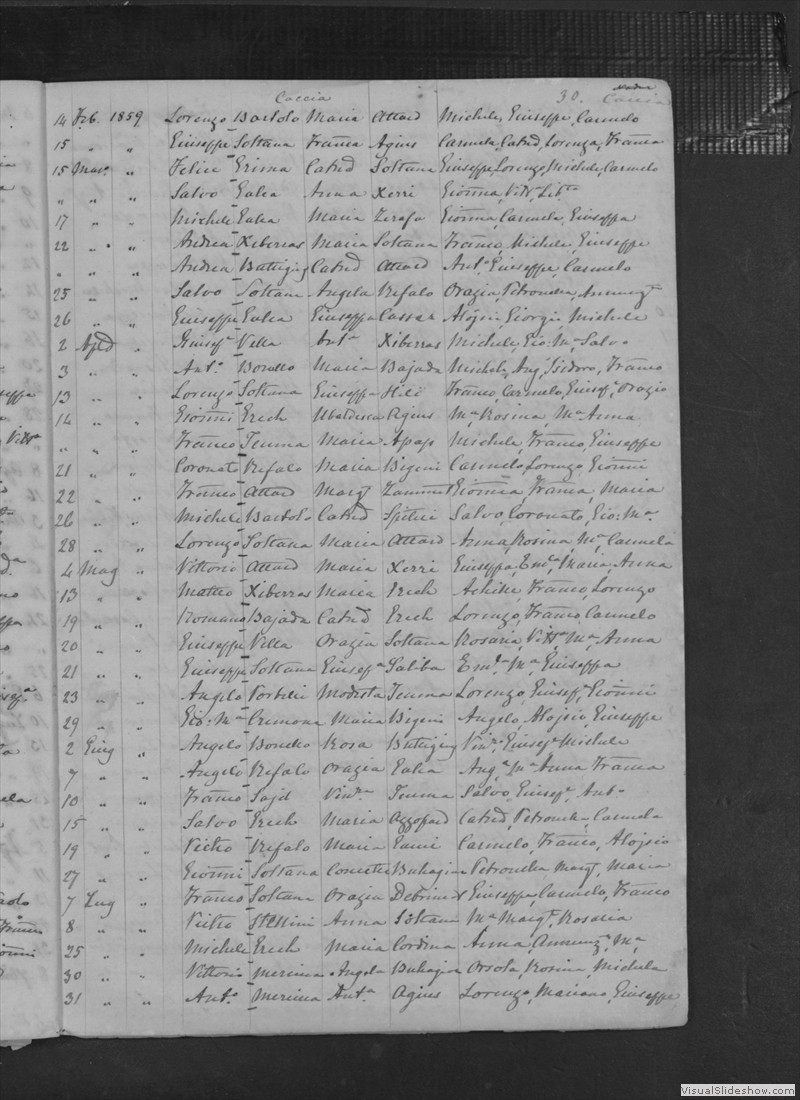 Caccia 30. Nadur Caccia
14 Feb. 1859 Lorenzo Bartolo Maria Attard Michele, Giuseppe, Carmelo
15 " " Giuseppe Soltana Franca Agius Carmela, Catrd, Lorenza, Franca
15 Mar. " Felice Grima Catrd Soltana Giuseppe, Lorenzo, Michele, Carmelo
" " " Salvo Galea Anna Xerri Gionna, Vitt
17 " " Michele Galea Maria Zerafa Gionna, Carmela, Giuseppa
22 " " Andrea Xiberras Maria Soltana Franco, Michele, Giuseppe
" " " Andrea Buttigieg Catrd Attard Ant.o Giuseppe, Carmelo
25 " " Salvo Soltana Angela Refalo Orazia, Petronilla, Annunz
26 " " Giuseppe Galea Giuseppa Cassar Alojsio, Giorgio, Michele
2 Aple " Giusep.e Vella Ant.a Xiberras Michele, Gio: M.a Salvo
3 " " Ant.o Borello Maria Bajada Michele, Ang, Isidoro, Franco
13 " " Lorenzo Soltana Giuseppa Franco, Carmelo, Giusep, Orazio
14 " " Gionni Grech Ubaldesca Agius M.a Rosina M.a Anna
" " " Franco Teuma Maria Apap Michele, Franco, Giuseppe
21 " " Coronato Refalo Maria Bigeni Carmelo, Lorenzo, Gionni
22 " " Franco Attard Marg Zammit Gionna, Franca, Maria
26 " " Michele Bartolo Catrd Spiteri Salvo, Coronato, Gio: M.a
28 " " Lorenzo Soltana Maria Attard Anna, Rosina M.a Carmela
4 Mag " Vittorio Attard Maria Xerri Giuseppa, Em.la Maria, Anna
13 " " Matteo Xiberras Maria Grech Achille, Franco, Lorenzo
19 " " Romano Bajada Catrd Grech Lorenzo, Franco Carmelo
20 " " Giuseppe Vella Orazia Soltana Rosaria, Vitt.a M.a Anna
21 " " Giuseppe Soltana Giusep.a Saliba Em.la M.a Giuseppa
23 " " Angelo Portelli Modesta Teuma Lorenzo, Giusep, Gionni
29 " " Gio: M.a Cremona Maria Bigeni Angelo, Alojsio, Giuseppe
2 Giug " Angelo Borello Rosa Buttigieg Vin.zo Giusep.e Michele
7 " " Angelo Refalo Orazia Galea Ang.a M.a Anna Franca
10 " " Franco Said Vinc.a Teuma Salvo, Giusep.e Ant.o
15 " " Salvo Grech Maria Azzopard Catrd, Petronilla, Carmela
19 " " Pietro Refalo Maria Cauci Carmelo, Franco, Alojsio
27 " " Gionni Soltana Concetta Buhagiar Petronilla Marg, Maria
7 Lug " Franco Soltana Orazia Debrincat Giuseppa, Carmelo, Franco
8 " " Pietro Stellini Anna Soltana M.a Marg.a Rosaria
25 " " Michele Grech Maria Cordina Anna, Annunz, M.a
30 " " Vittorio Mercieca Angela Buhagiar Orsola, Rosina, Michela
31 " " Ant.o Mercieca Ant.a Agius Lorenzo, Mariano, Giuseppe
VisualSlideshow.com